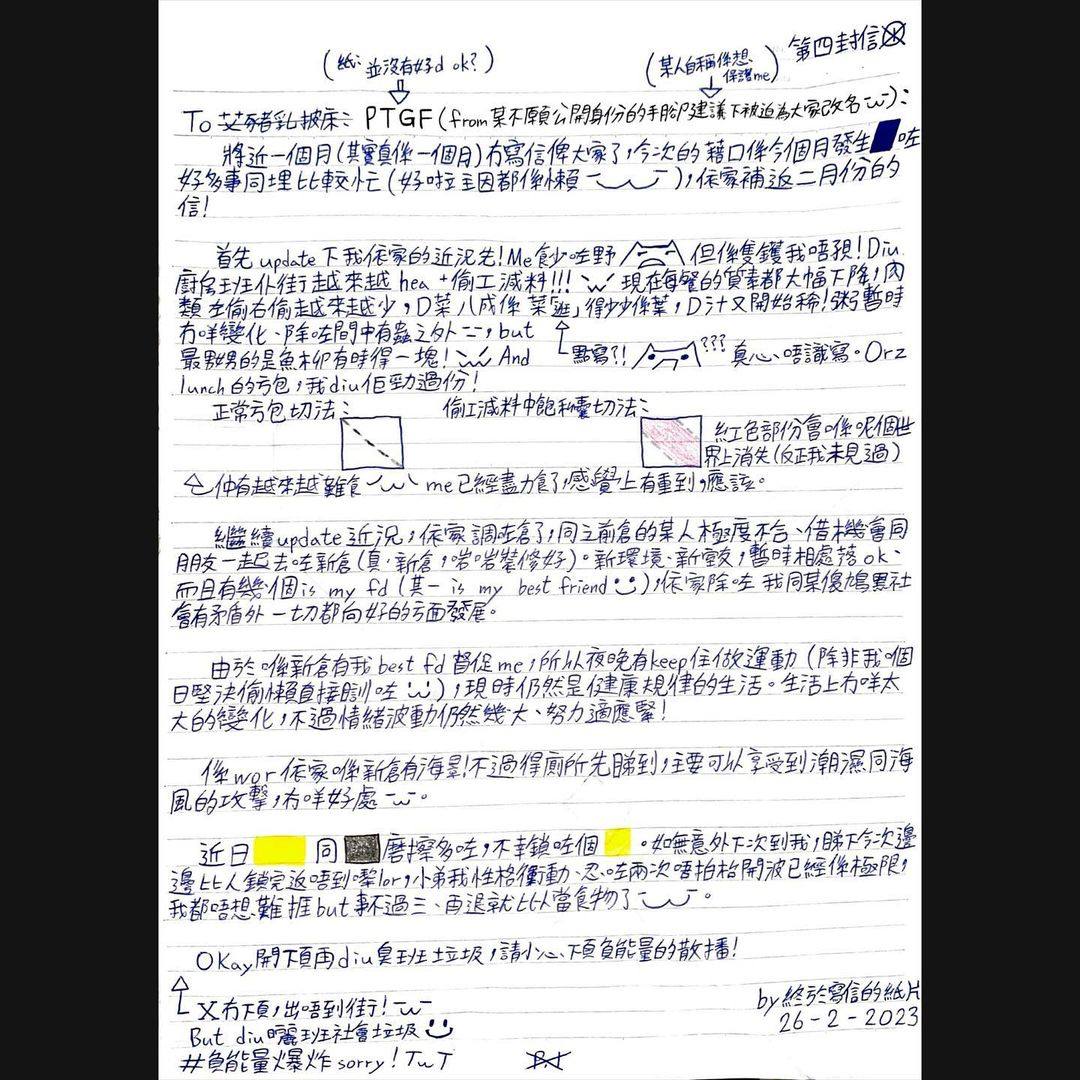 第四封信
(紙: 並沒有好d ok?)
(某人自稱係想保護me)
To 艾豬乳披床: PTGF (from 某不願公開身份的手腳建議下被迫為大家改名):
將近一個月(其實真係一個月)冇寫信俾大家了,今次的藉口係今個月發生咗
好多事同埋比較忙(好啦主因都係懶),依家補返二月份的
信!
首先update下我依家的近況先!Me 食少咗野 但係隻鑊我唔孭!Diu
廚房班仆街越來越 hea +偷工減料!!! 現在每餐的質素都大幅下降,肉
類左偷右偷越來越少,D菜八成係 菜「」得少少係葉,D汁又開始稀!粥暫時
冇咩變化、除咗間中有蟲之外 ==, but
最的是魚柳有時得一塊! And
點寫?! ??? 真心、唔識寫。Orz
lunch的方包,我diu佢勁過份!
正常方包切法: 偷工減料中飽私囊切法:
紅色部份會喺呢個世
界上消失(反正我未見過)
仲有越來越難食 me已經盡力食了,感覺上有重到,應該。
繼續update近況,依家調咗倉了,同之前倉的某人極度不合、借機會同
朋友一起去咗新倉(真·新倉,啱啱裝修好)。新環境、新室友,暫時相處落ok、
而且有幾個is my fd (其一 is my best friend),依家除咗 我同某傻鳩黑社
會有矛盾外一切都向好的方面發展。
由於喺新倉有我best fd 督促me,所以夜晚有keep住做運動(除非我個
日堅決偷懶直接瞓咗),現時仍然是健康規律的生活。生活上冇咩太
大的變化,不過情緒波動仍然幾大、努力適應緊!
係wor依家喺新倉有海景!不過得廁所先睇到,主要可以享受到潮濕同海
風的攻擊,冇咩好處 。
近日 同 磨擦多咗,不幸鎖咗個 。如無意外下次到我,睇下今次邊
邊比人鎖完返唔到嚟lor,小弟我性格衝動、忍咗兩次唔拍格開波已經係極限,
我都唔想難捱but事不過三、再退就比人當食物了 。
OKay開下頁再diu臭班垃圾,請小心下頁負能量的散播!
X冇下頁,出唔到街!
But diu曬班社會垃圾
#負能量爆炸sorry! TwT
by終於寫信的紙片
26-2-2023